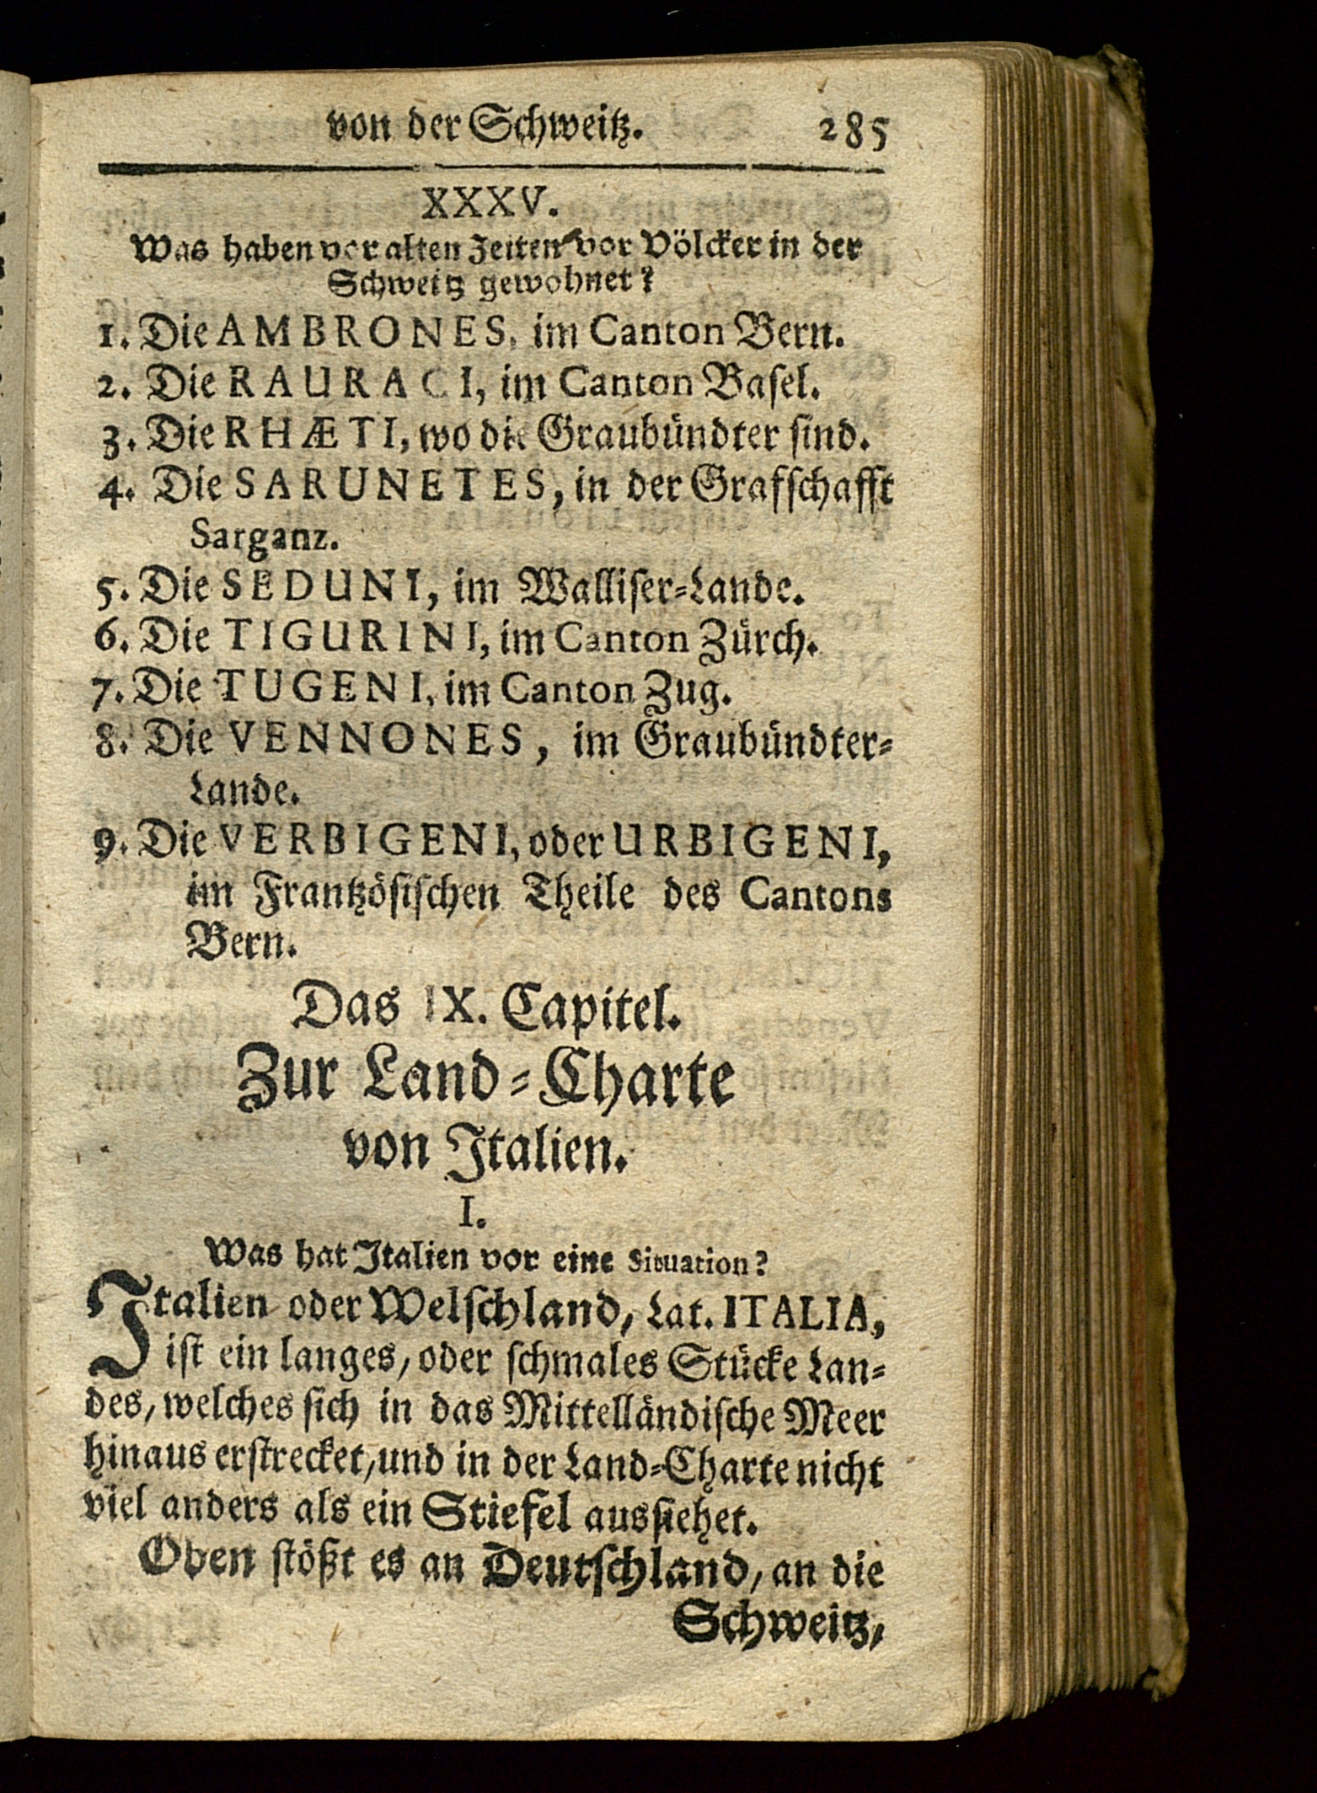 von der Schweitz. 285
XXXV.
Was haben vor alten Zeiten vor Völcker in der
Schweitz gewohnet?
1. Die AMBRONES, im Canton Bern.
2. Die RAURACI, im Canton Basel.
3. Die RHÆTI, wo die Graubündter sind.
4. Die SARUNETES, in der Grafschafft
Sarganz.
5. Die SEDUNI, im Walliser-Lande.
6. Die TIGURINI, im Canton Zürch.
7. Die TUGENI, im Canton Zug.
8. Die VENNONES, im Graubündter-
Lande.
9. Die VERBIGENI, oder URBIGENI,
im Frantzösischen Theile des Cantons
Bern.
Das IX. Capitel.
Zur Land-Charte
von Italien.
I.
Was hat Italien vor eine Situation?
Italien oder Welschland, Lat. ITALIA,
ist ein langes, oder schmales Stücke Lan-
des, welches sich in das Mittelländische Meer
hinaus erstrecket, und in der Land-Charte nicht
viel anders als ein Stiefel aussiehet.
Oben stößt es an Deutschland, an die
Schweitz,